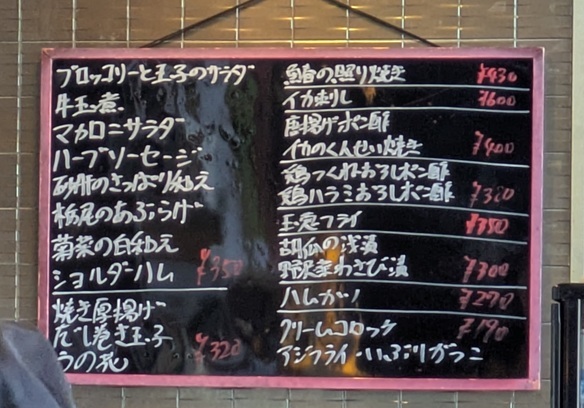 ブロッコリーと玉子のサラダ
牛玉煮
マカロニサラダ
ハーブソーセージ
砂肝のさっぱり和え
栃尾のあぶらげ
菊菜の白和え
ショルダーハム ¥350
焼き厚揚げ
だし巻き玉子 ¥320
うの花
鰆の照り焼き ¥430
イカ刺し ¥600
唐揚げポン酢
イカのくんせい焼き ¥400
鶏つくねおろしポン酢
鶏ハラミおろしポン酢 ¥380
玉葱フライ ¥350
胡瓜の浅漬
野沢菜わさび漬 ¥300
ハムカツ ¥290
クリームコロッケ ¥190
アジフライ・いぶりがっこ